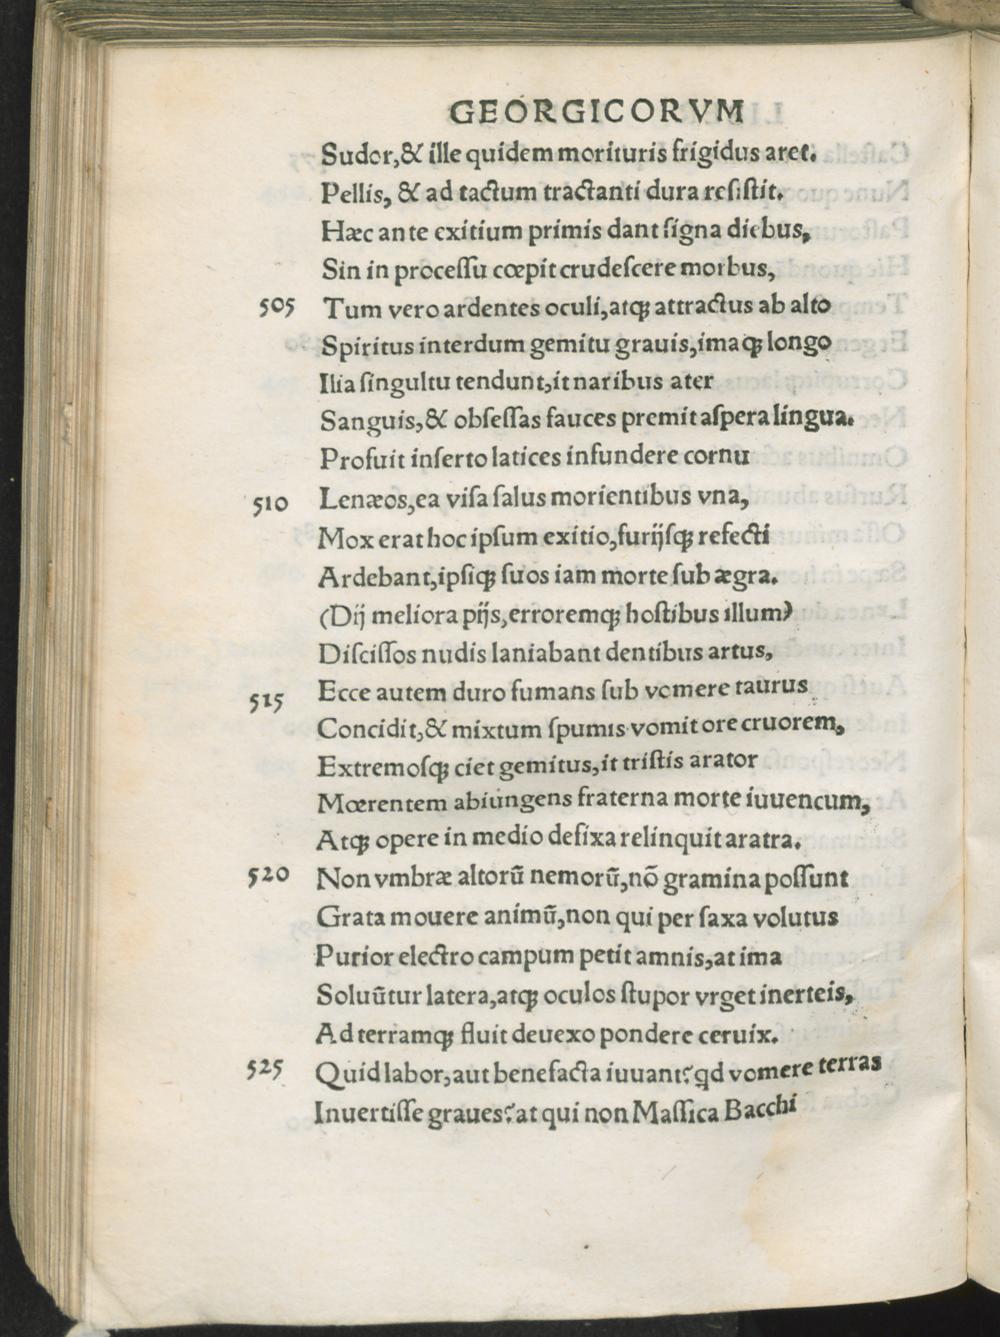 GEORGICORVM
Sudor,& ille quidem morituris frigidus aret.
Pellis, & ad tactum tractanti dura resistit.
Hæc ante exitium primis dant signa diebus,
Sin in processu cœpit crudescere morbus,
505 Tum vero ardentes oculi,atq; attractus ab alto
Spiritus interdum gemitu grauis,imaq; longo
Ilia singultu tendunt,it naribus ater
Sanguis,& obsessas fauces premit aspera lingua.
Profuit inserto latices infundere cornu
510 Lenæos,ea visa salus morientibus vna,
Mox erat hoc ipsum exitio,furijsq; refecti
Ardebant,ipsiq; suos iam morte sub ægra.
(Dij meliora pijs,erroremq; hostibus illum)
Discissos nudis laniabant dentibus artus,
515 Ecce autem duro fumans sub vomere taurus
Concidit,& mixtum spumis vomit ore cruorem,
Extremosq; ciet gemitus,it tristis arator
Mœrentem abiungens fraterna morte iuuencum,
Atq; opere in medio defixa relinquit aratra.
520 Non vmbræ altorũ nemorũ,nõ gramina possunt
Grata mouere animũ,non qui per saxa volutus
Purior electro campum petit amnis,at ima
Soluũtur latera,atq; oculos stupor vrget inerteis,
Ad terramq; fluit deuexo pondere ceruix.
525 Quid labor,aut benefacta iuuant? qd vomere terras
Inuertisse graues? at qui non Massica Bacchi